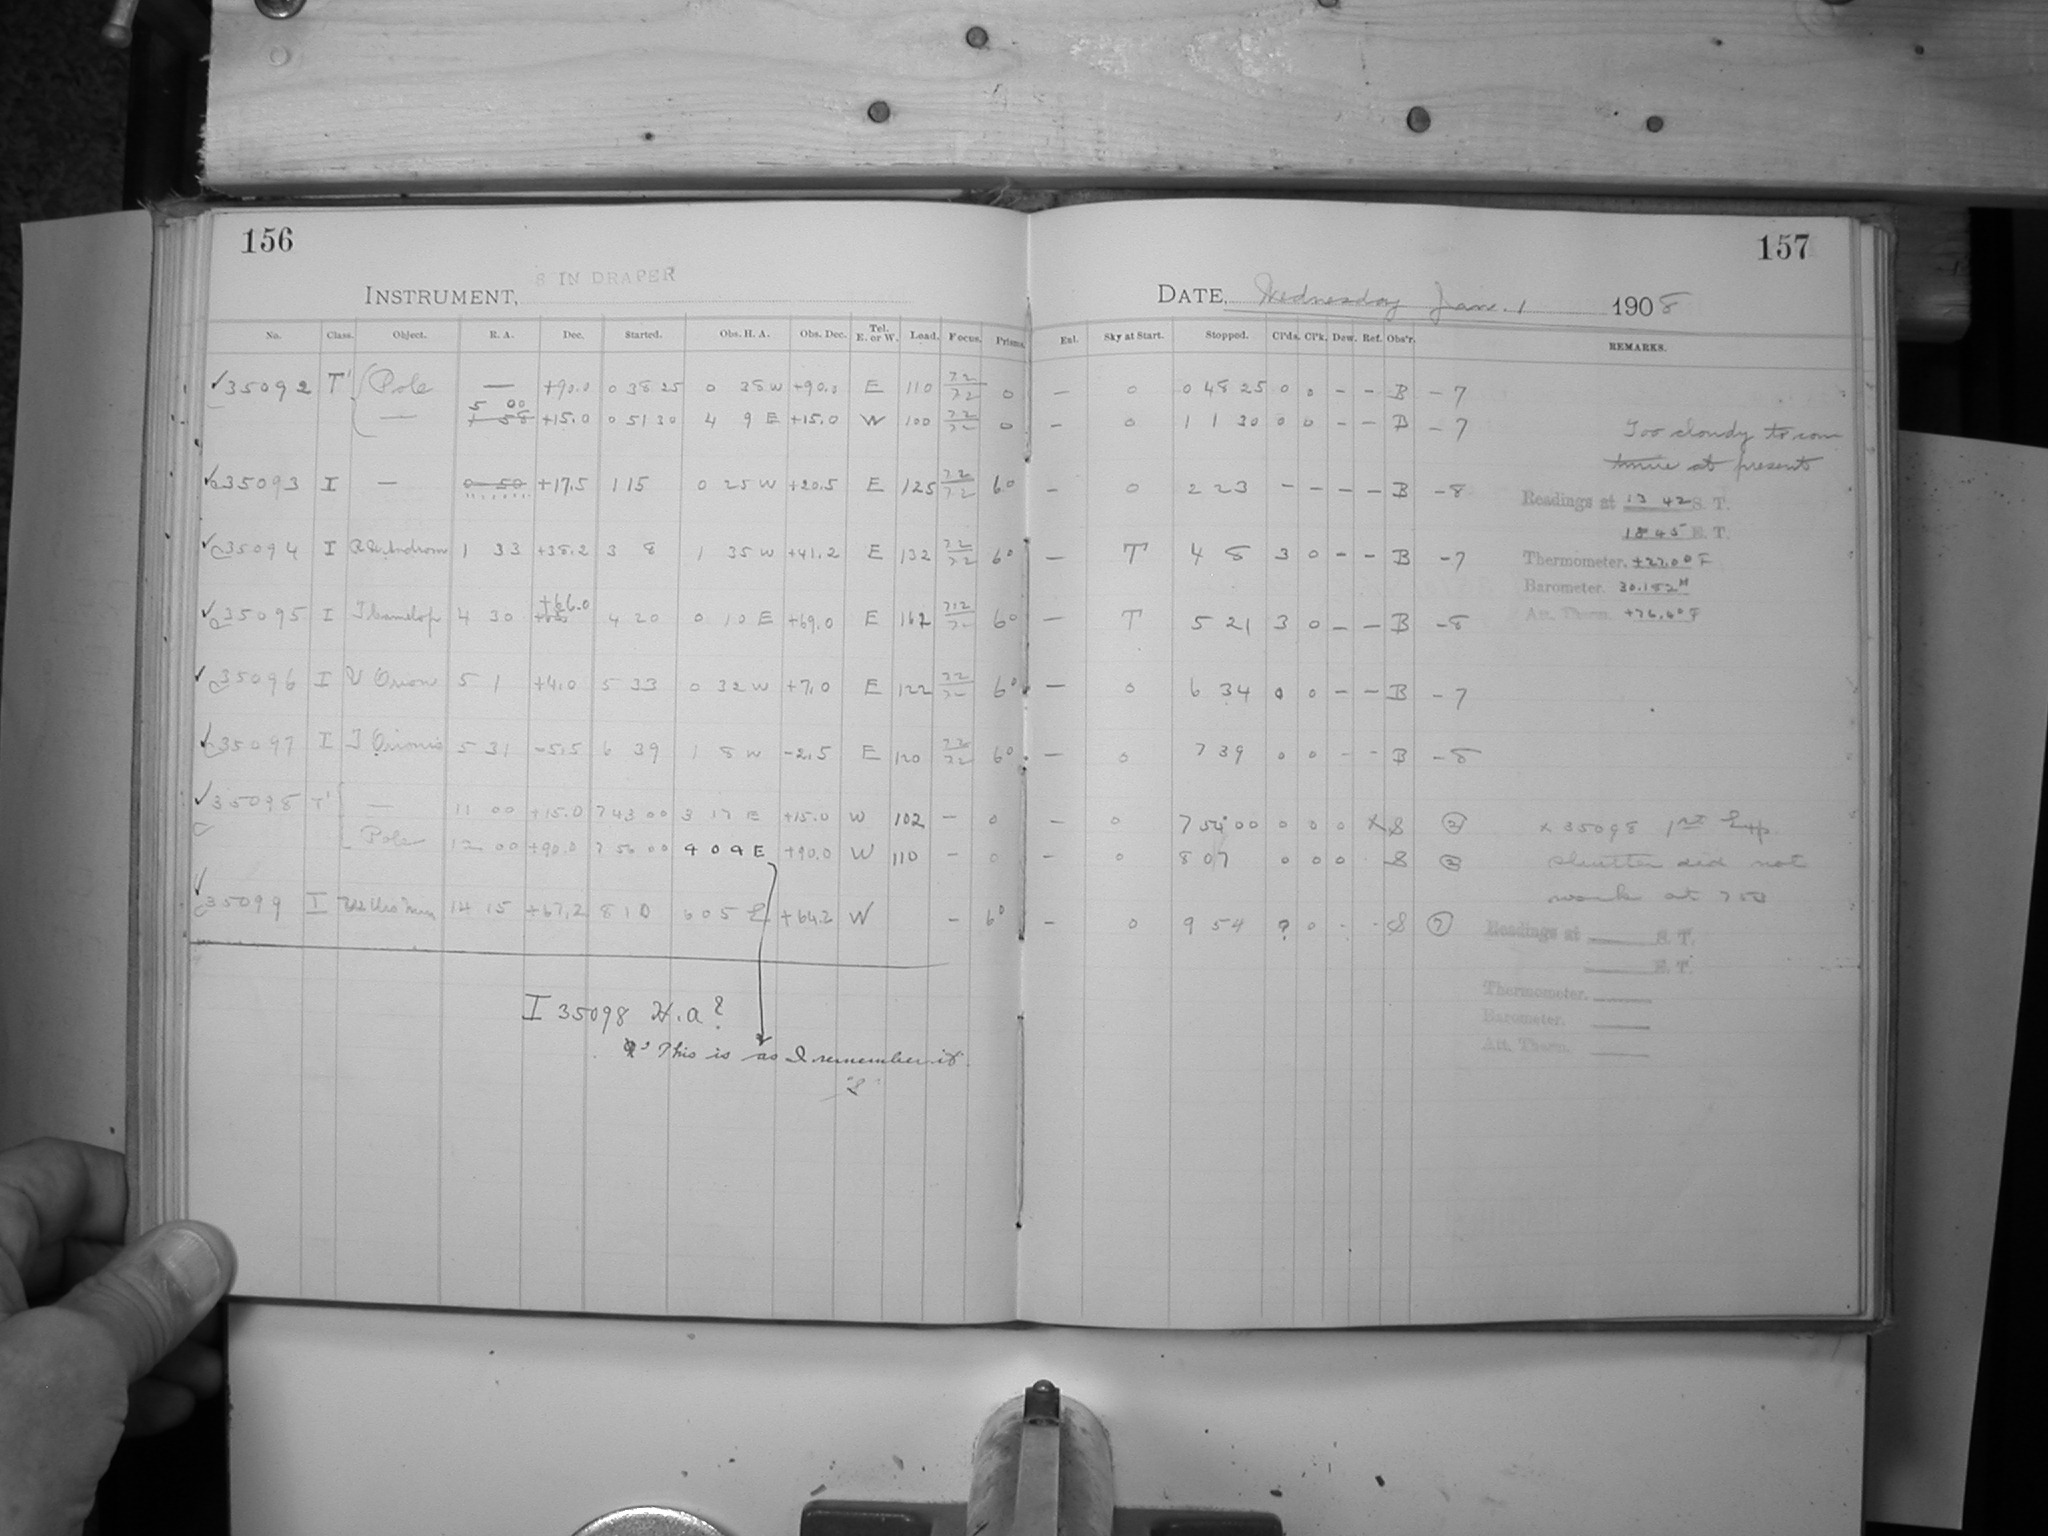 156
8 IN DRAPER
INSTRUMENT,
No. Class. Object. R. A. Dec. Started. Obs. H. A. Obs. Dec. Tel. E. or W. Load. Focus. Prism.
35092 T' Pole — +90.0 0 38 25 0 38 W +90.0 E 110 0
— 5 00 +15.0 0 51 30 4 9 E +15.0 W 100 0
35093 I — 0 50 +17.5 1 15 0 25 W +20.5 E 125 6°
35094 I 1 33 +38.2 3 8 1 35 W +41.2 E 132 6°
35095 I T Camelop 4 30 +66.0 4 20 0 10 E +69.0 E 162 6°
35096 I V Orion 5 1 +4.0 5 33 0 32 W +7.0 E 122 6°
35097 I T Orionis 5 31 -5.5 6 39 1 8 W -2.5 E 120 6°
35098 T' — 11 00 +15.0 7 43 00 3 17 E +15.0 W 102 — 0
Pole 12 00 +90.0 7 56 00 4 04 E +90.0 W 110 — 0
35099 I 14 15 +67.2 8 10 6 05 E +64.2 W — 6°
I 35098 H.a?
This is as I remember it
"S"
157
DATE, Wednesday Jan. 1 1908
Enl. Sky at Start. Stopped. Cl'ds. Cl'k. Dew. Ref. Obs'r. REMARKS.
— 0 0 48 25 0 0 – – B – 7
— 0 1 1 30 0 0 – – B – 7
— 0 2 23 – – – – B – 8
— T 4 8 3 0 – – B – 7
— T 5 21 3 0 – – B – 8
— 0 6 34 0 0 – – B – 7
— 0 7 39 0 0 – – B – 8
— 0 7 54 00 0 0 0 X S
— 0 8 07 0 0 0 S
— 0 9 54 ? 0 - - S 7
Too cloudy to con
tinue at present
Readings at 13 42 S. T.
18 45 E. T.
Thermometer. +27.0° F
Barometer. 30.182 H
Att. Therm. +76.6° F
x 35098 1st Exp.
shutter did not
work at 753
Readings at S. T.
E. T.
Thermometer.
Barometer.
Att. Therm.